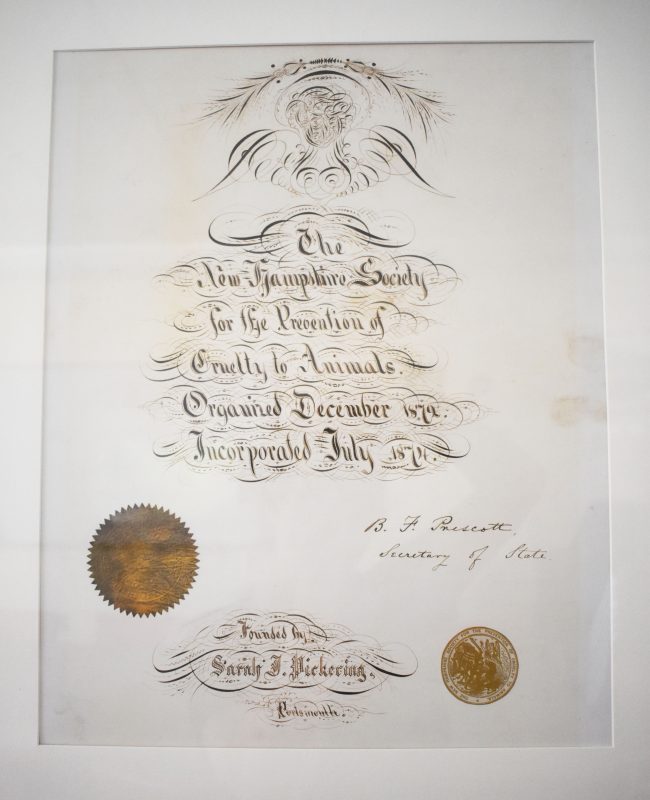 The
New-Hampshire Society
for the Prevention of
Cruelty to Animals.
Organized December 1872.
Incorporated July
B. F. Prescott,
Secretary of State.
Founded by
Sarah J. Pickering,
Portsmouth.